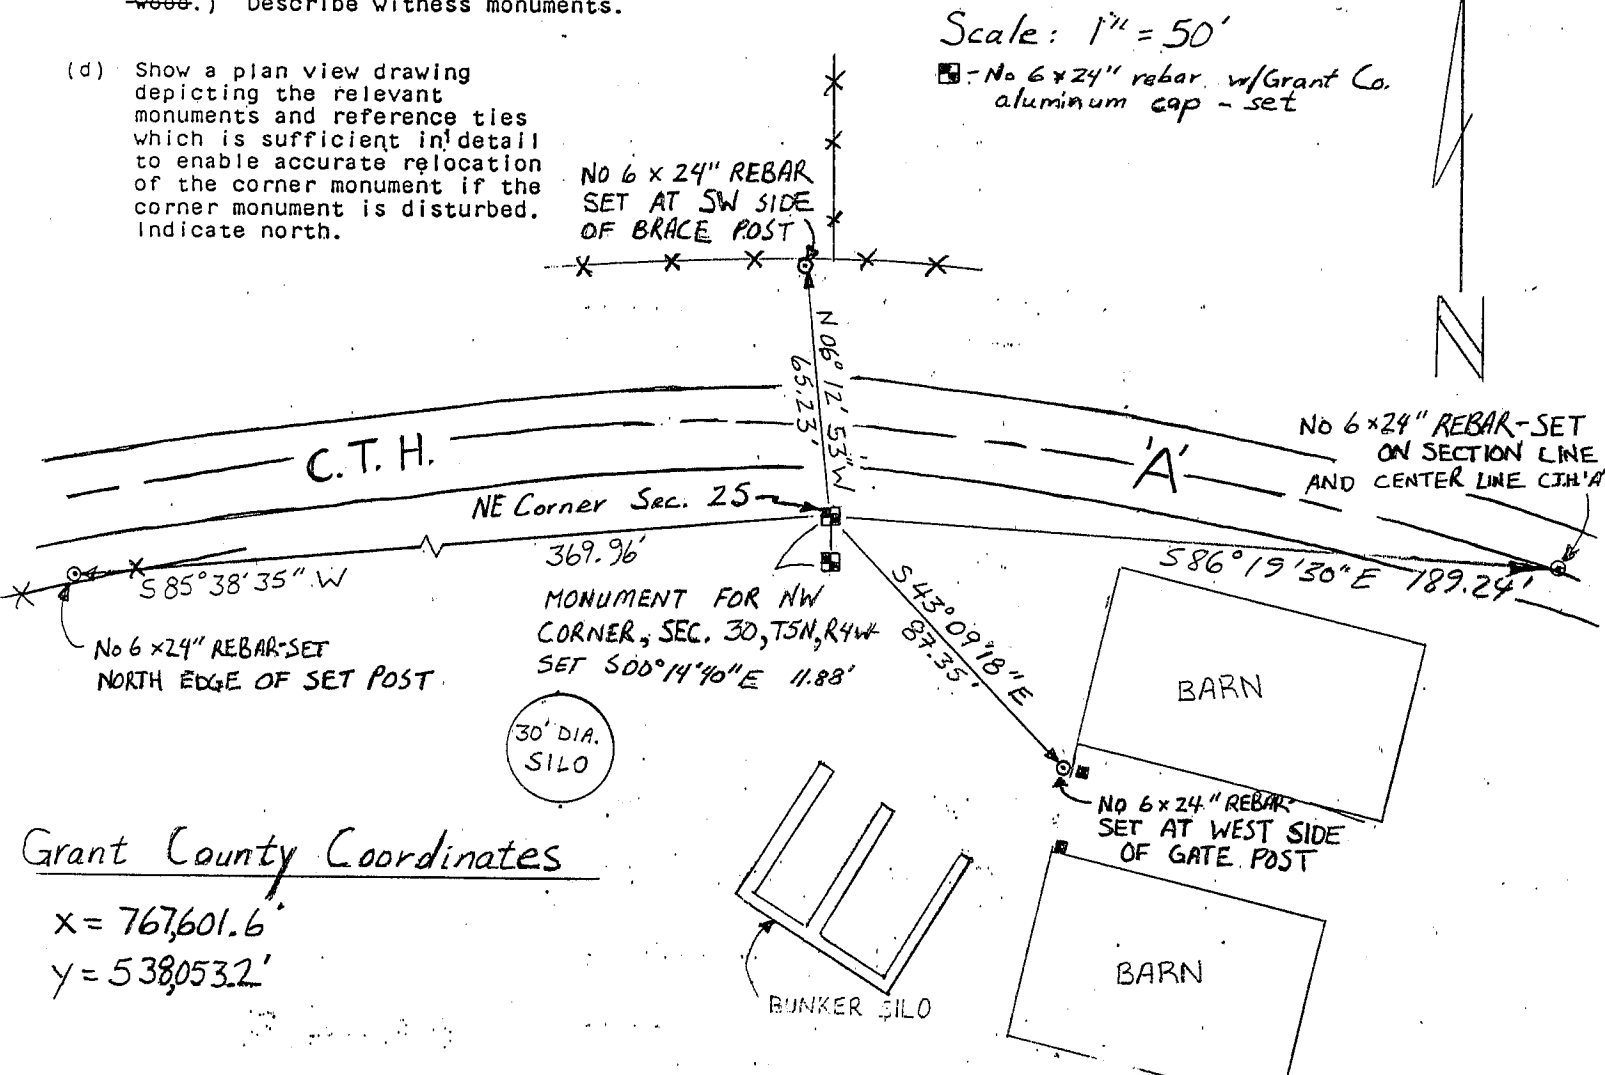 wood.) Describe witness monuments.
(d) Show a plan view drawing
depicting the relevant
monuments and reference ties
which is sufficient in detail
to enable accurate relocation
of the corner monument if the
corner monument is disturbed.
Indicate north.
Scale: 1" = 50'
- No 6 x 24" rebar w/Grant Co.
aluminum cap - set
NO 6 x 24" REBAR
SET AT SW SIDE
OF BRACE POST
N
N 06° 12' 53" W
65.23'
C.T.H. 'A'
NO 6 x 24" REBAR-SET
ON SECTION LINE
AND CENTER LINE C.T.H. 'A'
NE Corner Sec. 25
369.96'
S 85° 38' 35" W
S 86° 19' 30" E 189.24'
No 6 x 24" REBAR-SET
NORTH EDGE OF SET POST
MONUMENT FOR NW
CORNER, SEC. 30, T5N, R4W
SET S00°14'40"E 11.88'
S 43° 09' 18" E
87.35'
BARN
30' DIA.
SILO
NO 6 x 24" REBAR
SET AT WEST SIDE
OF GATE POST
Grant County Coordinates
x = 767,601.6'
y = 538,053.2'
BUNKER SILO
BARN